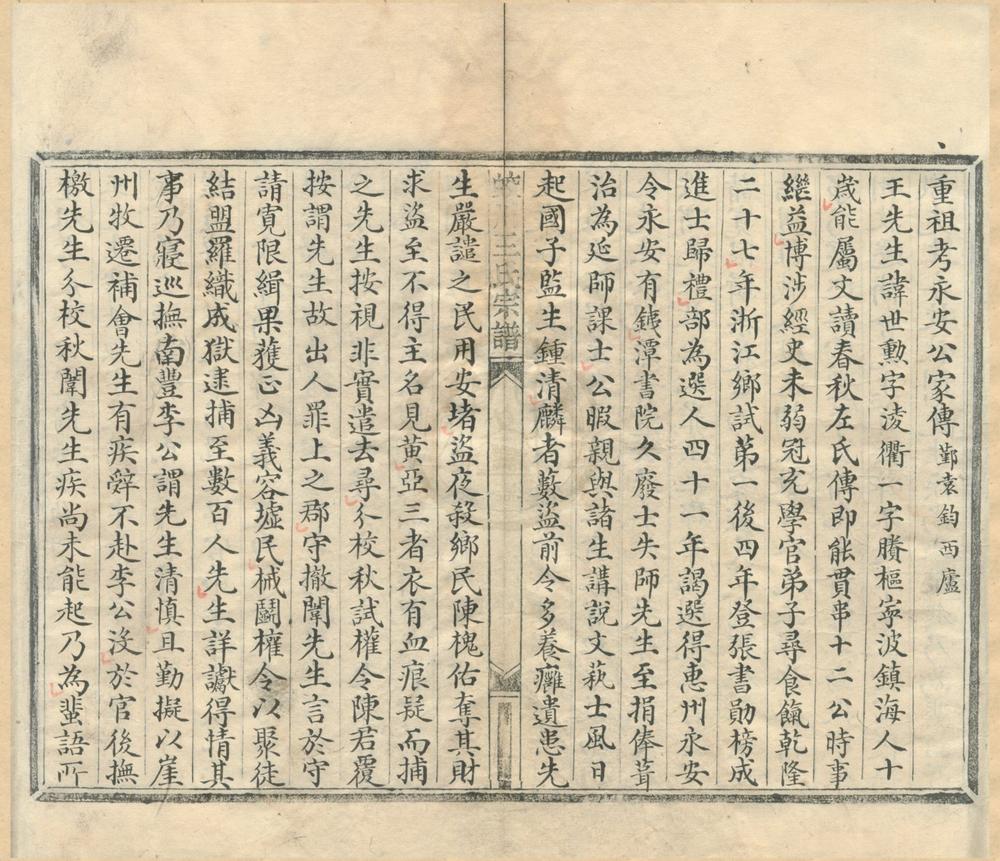 重祖考永安公家傳 鄞袁鈞西廬
王先生諱世勲字淩衢一字賸樞寧波鎮海人十
歲能屬文讀春秋左氏傳即能貫串十二公時事
繼益博涉經史未弱冠充學官弟子尋食餼乾隆
二十七年浙江鄉試苐一後四年登張書勛榜成
進士歸禮部為選人四十一年謁選得惠州永安
令永安有鉄潭書院久廢士失師先生至捐俸葺
治為延師課士公暇親與諸生講說文萟士風日
起國子監生鍾清麟者藪盜前令多養癰遺患先
王氏宗譜
生嚴譴之民用安堵盜夜殺鄉民陳槐佑奪其財
求盜至不得主名見黄亞三者衣有血痕疑而捕
之先生按視非實遣去尋分校秋試權令陳君覆
按謂先生故出人罪上之郡守撤闈先生言於守
請寬限緝果獲正凶義容墟民械鬭權令以聚徒
結盟羅織成獄逮捕至數百人先生詳讞得情其
事乃寢巡撫南豐李公謂先生清慎且勤擬以崖
州牧遷補會先生有疾辤不赴李公沒於官後撫
檄先生分校秋闈先生疾尚未能起乃為蜚語所